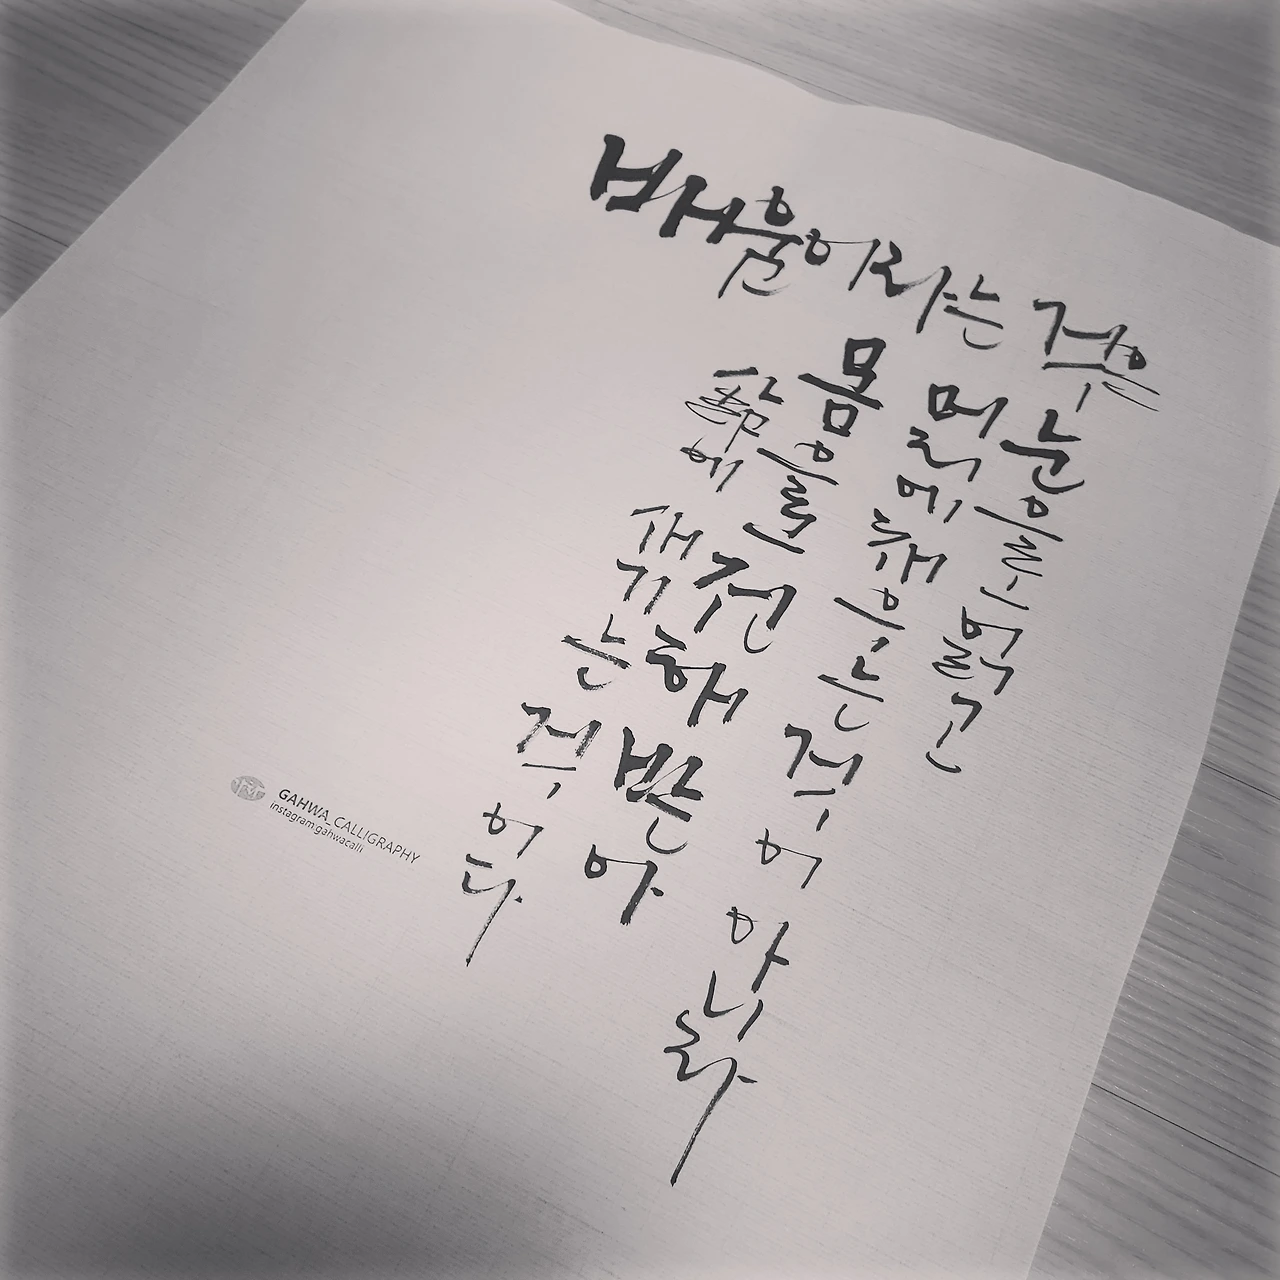 배움이라는 것은
눈으로 읽고
머리에 채우는 것이 아니라
몸으로 전해 받아
가슴에 새기는 것이다
GAHWA_CALLIGRAPHY
instagram:gahwacalli